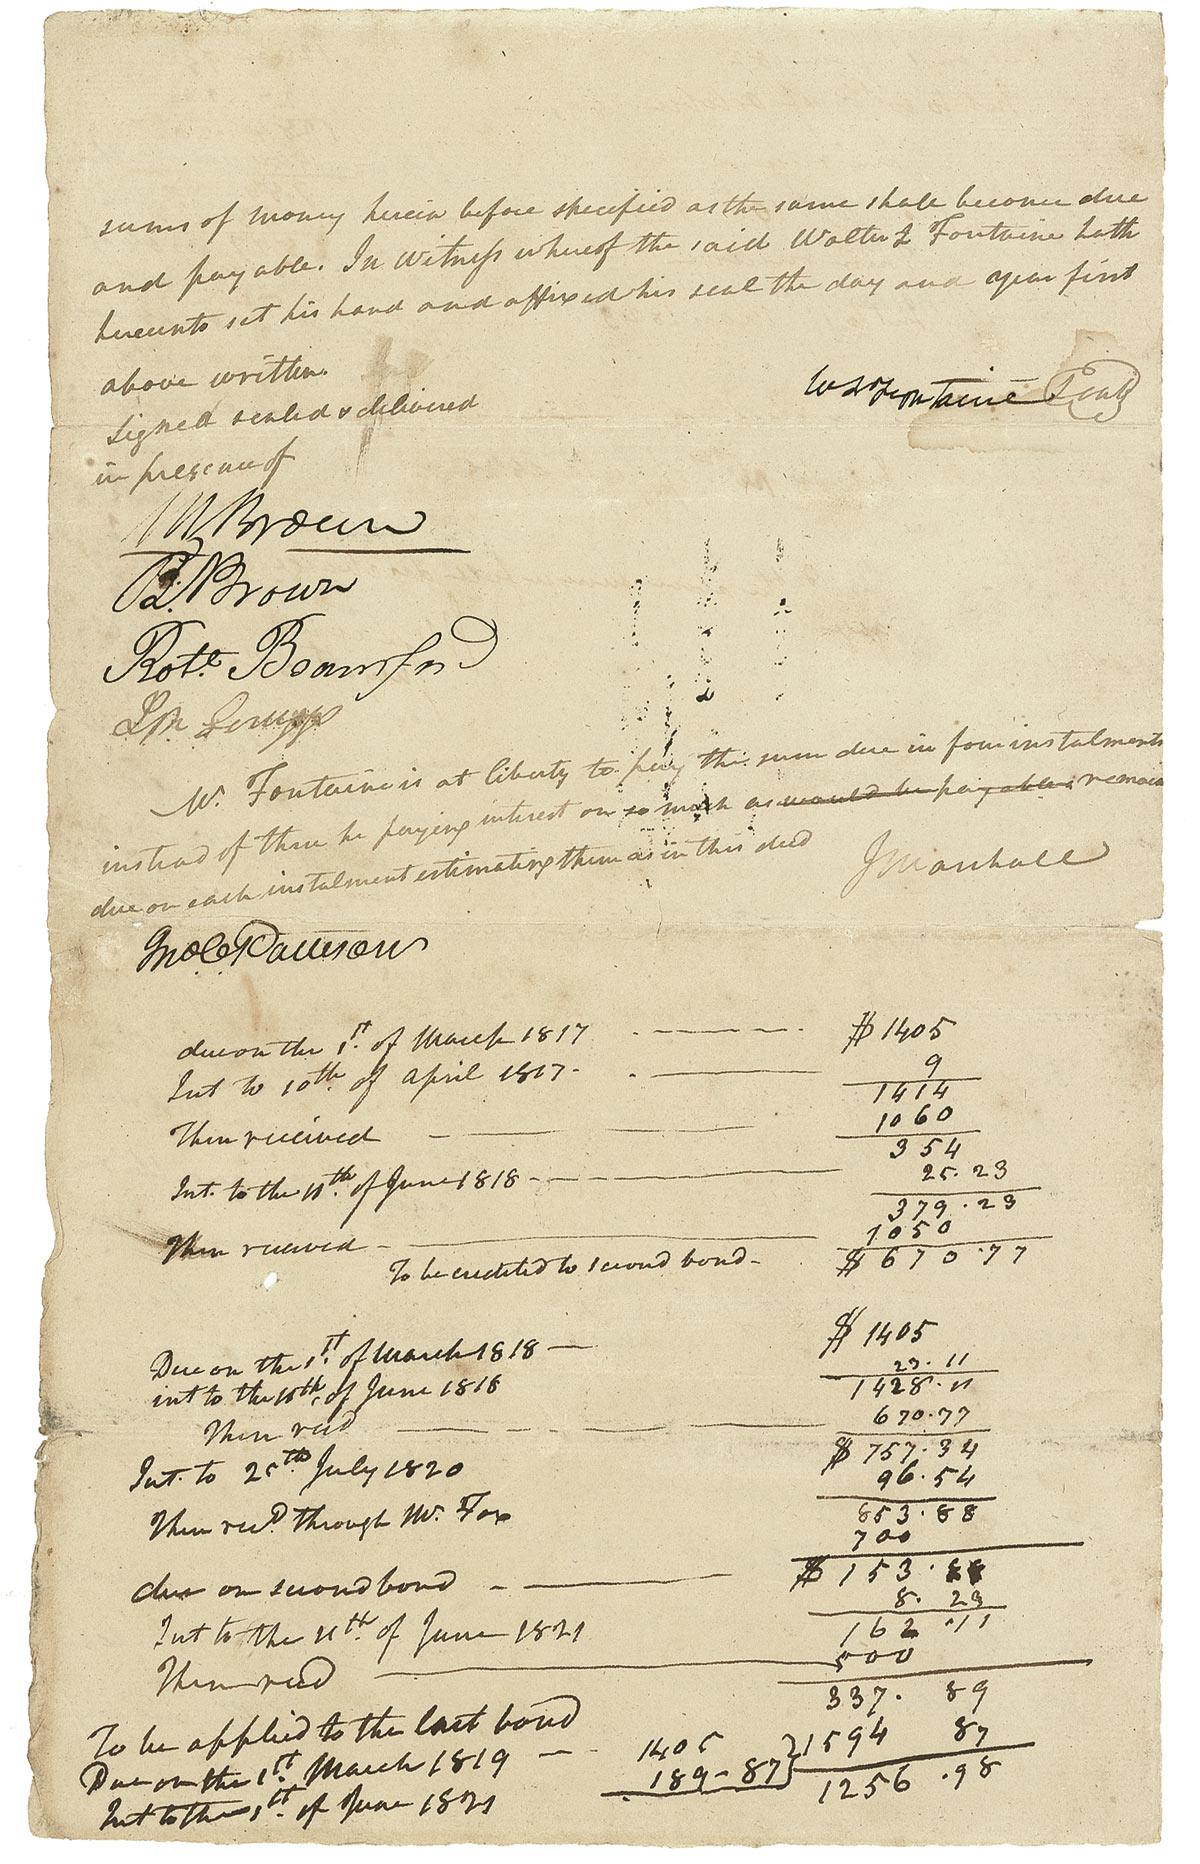 sums of money herein before specified as the same shall become due
and payable. In Witness whereof the said Walter L Fontaine hath
hereunto set his hand and affixed his seal the day and year first
above written.
W L Fontaine Seal
Signed sealed & delivered
in presence of
M Brown
B. Brown
Rott. Beamford
Mr. Fontaine is at liberty to pay the sum due in four instalments
instead of three he paying interest on so much as would be payable remain
due on each instalment estimating them as in this deed
J Marshall
Jno. C. Patteson
due on the 1st. of March 1817 $1405
Int to 10th. of April 1817 - 9
1414
Then received 1060
354
Int. to the 11th. of June 1818 - 25.23
379.23
Then received - 1050
To be credited to second bond - $670.77
Due on the 1st. of March 1818 - $1405
int to the 10th. of June 1818 23.11
1428.11
Then recd 670.77
$757.34
Int. to 25th July 1820 96.54
853.88
Then recd. through Mr. Fox 700
due on second bond - $153.88
Int to the 11th of June 1821 8.23
162.11
Then recd 500
337.89
To be applied to the last bond
Due on the 1st. March 1819 - 1405 } 1594 87
Int to the 1st. of June 1821 189-87
1256.98